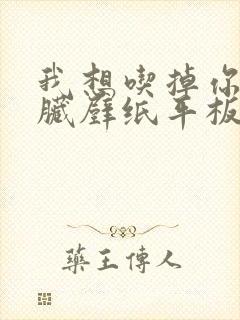 我想喫掉你
臟壁纸平板
藥王傳人